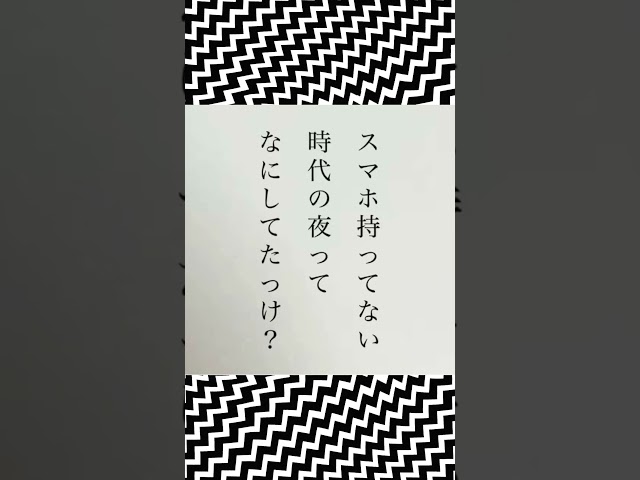 スマホ持ってない
時代の夜って
なにしてたっけ？